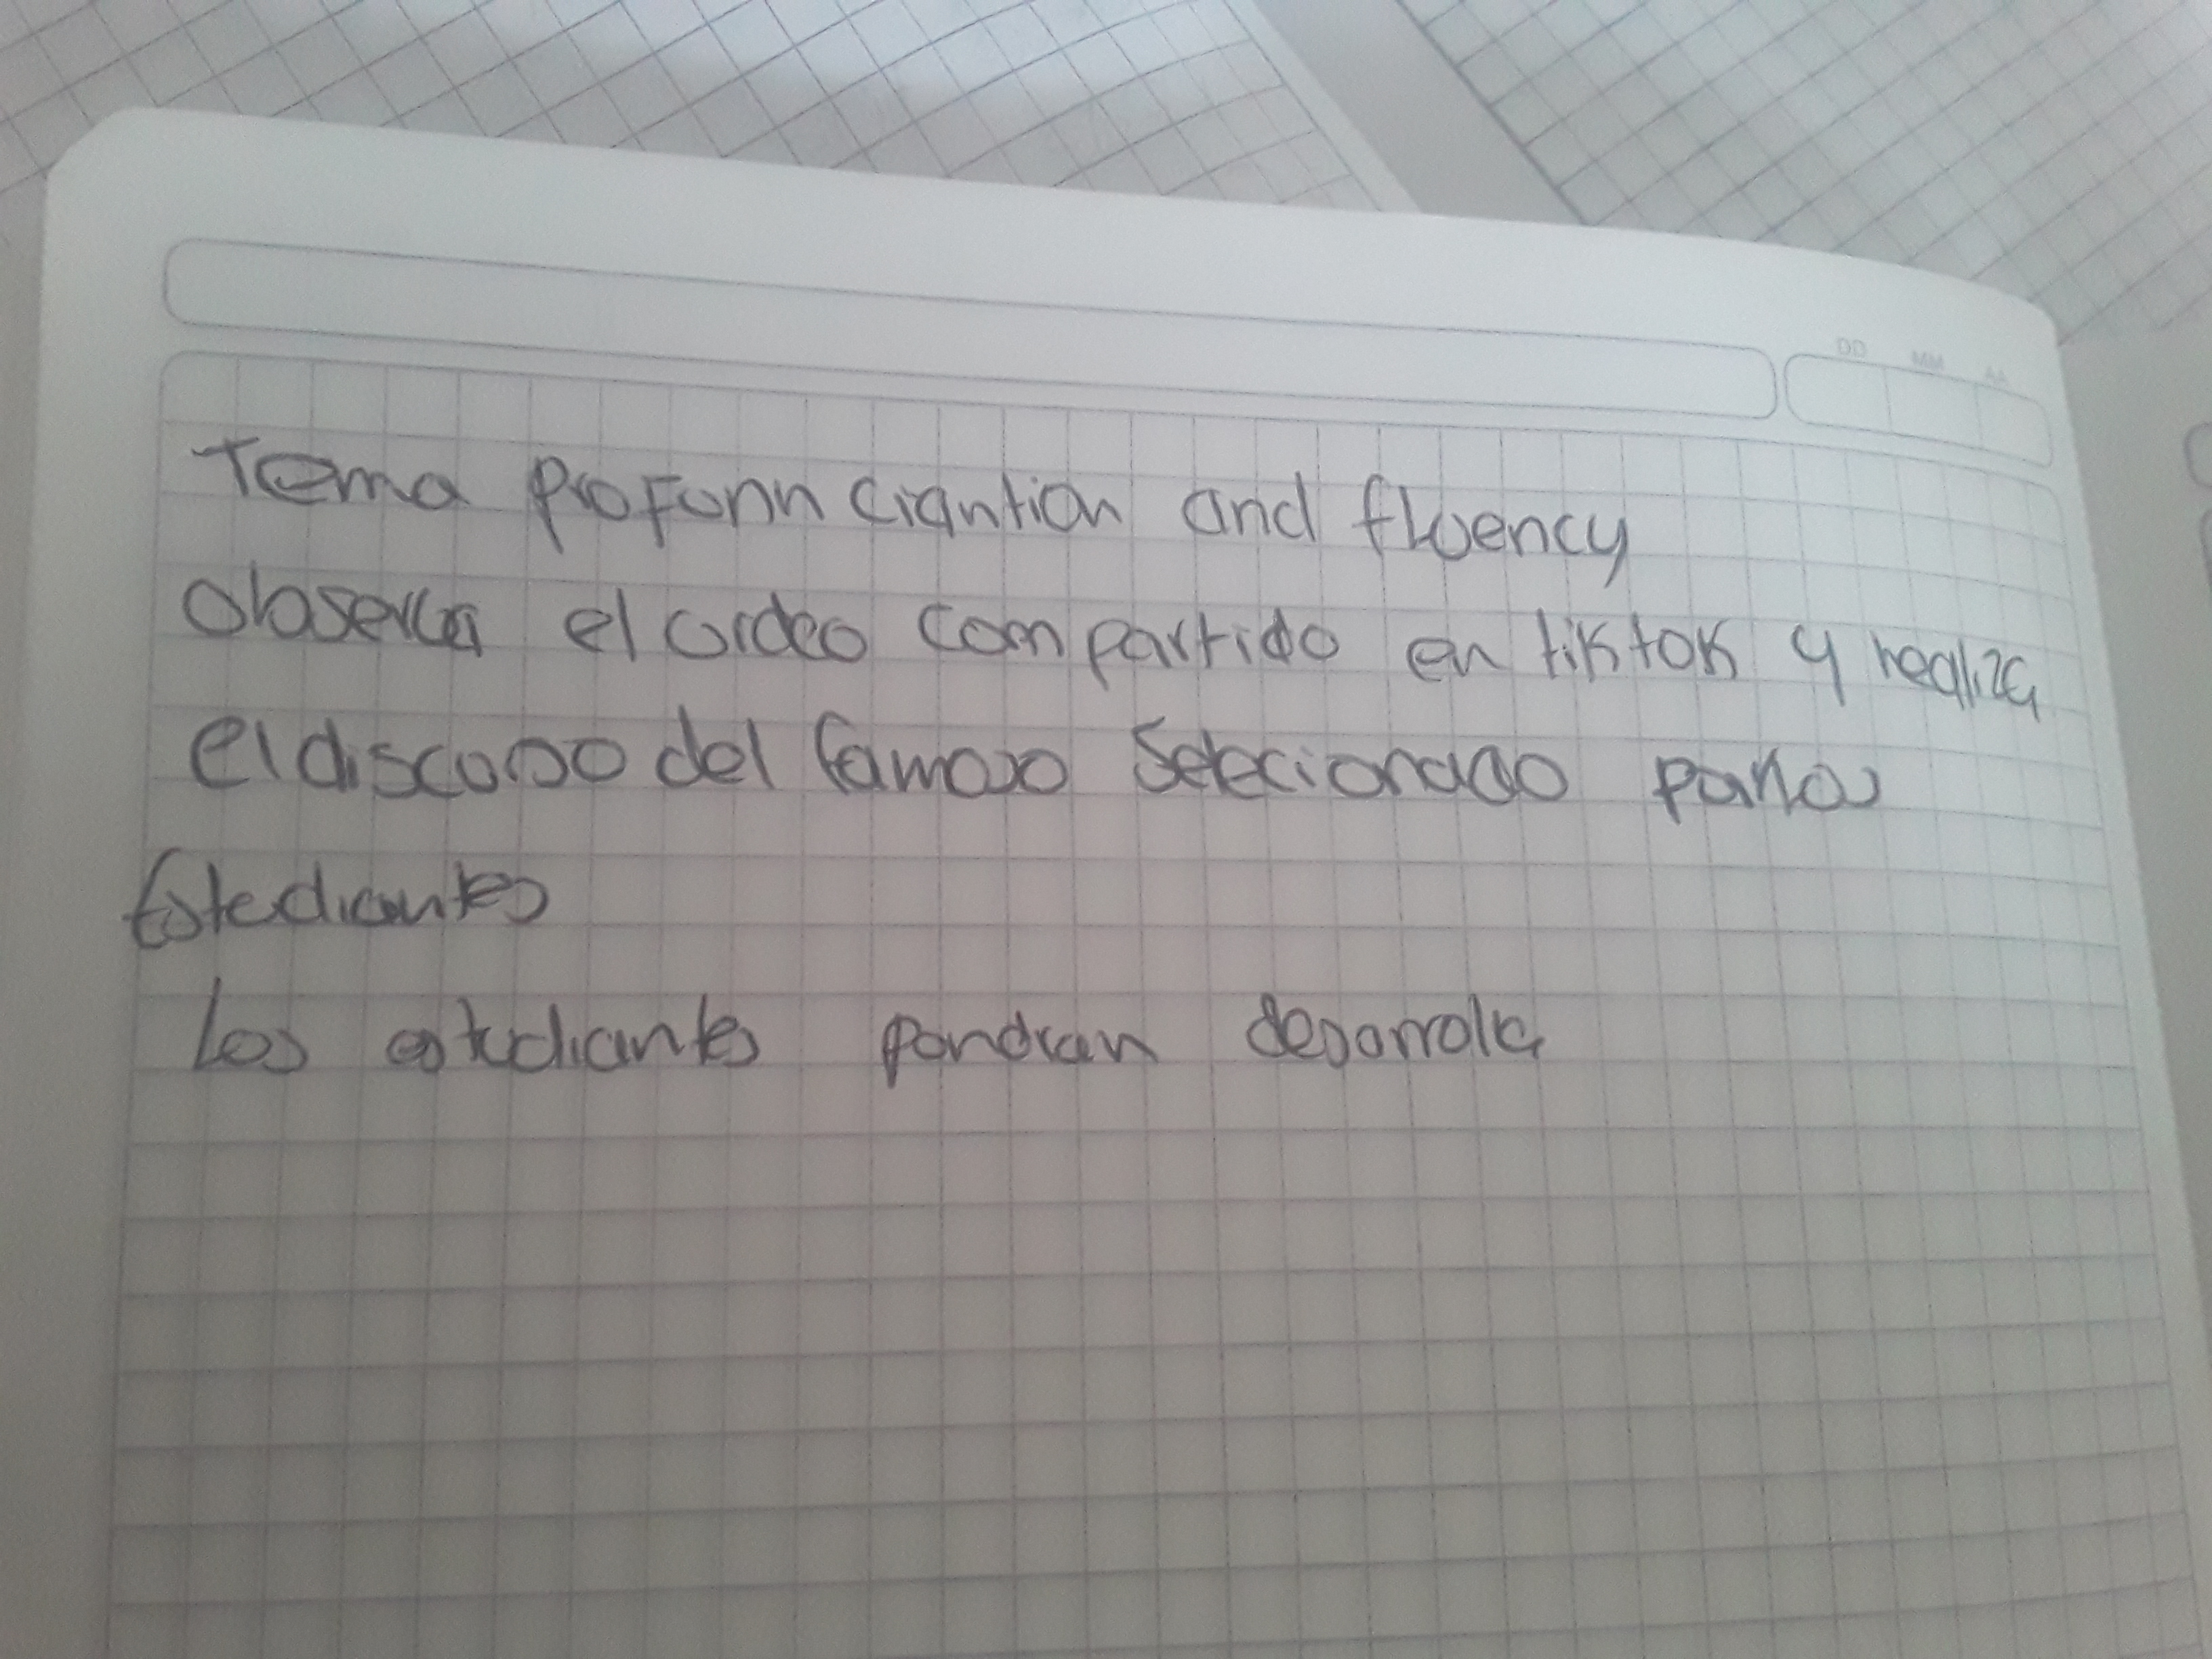 Tema Profonn Ciantion and fluency
Observa el video compartido en tiktok y realiza
el discurso del famoso Selecionado por los
Estudiantes
Los estudiantes pondran desarrola
DD MM AA